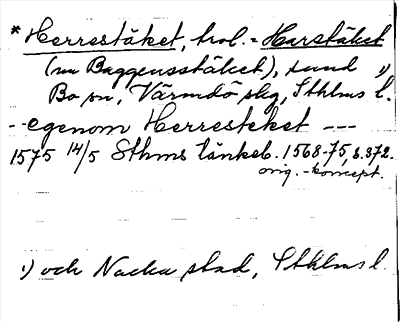 * Herrestäket, trol. = Harstäket
(nu Baggensstäket), sund 1)
Bo sn, Värmdö skg, Sthlms l.
-- egenom Herresteket ---
1575 14/5 Sthms tänkeb. 1568-75, s. 372.
orig. -koncept.
1) och Nacka stad, Sthlms l.